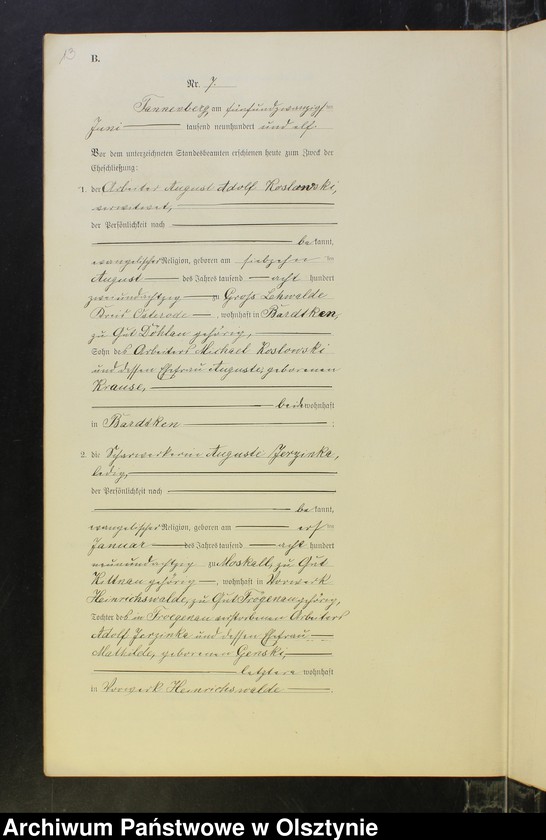 13
B.
Nr. 7.
Tannenberg, am fünfundzwanzigsten
Juni tausend neunhundert und elf
Vor dem unterzeichneten Standesbeamten erschienen heute zum Zweck der
Eheschließung:
1. der Arbeiter August Adolf Koslowski,
verwitwet,
der Persönlichkeit nach
bekannt,
evangelischer Religion, geboren am siebzehnten
August des Jahres tausend acht hundert
zweiundachtzig zu Groß Lehwalde
Kreis Osterode, wohnhaft in Bardtken,
zu Gut Döhlau gehörig,
Sohn des Arbeiters Michael Kostowski
und dessen Ehefrau Auguste, geborenen
Krause,
beide wohnhaft
in Bardtken ;
2. die Scharwerkerin Auguste Jerzinke,
ledig,
der Persönlichkeit nach
bekannt,
evangelischer Religion, geboren am ersten
Januar des Jahres tausend acht hundert
neunundachtzig zu Moskall, zu Gut
Kittnau gehörig, wohnhaft in Vorwerk
Heinrichswalde, zu Gut Frögenau gehörig,
Tochter des in Froegenau verstorbenen Arbeiters
Adolf Jerzinke und dessen Ehefrau
Mathilde, geborenen Genski,
letztere wohnhaft
in Vorwerk Heinrichswalde.
Archiwum Państwowe w Olsztynie